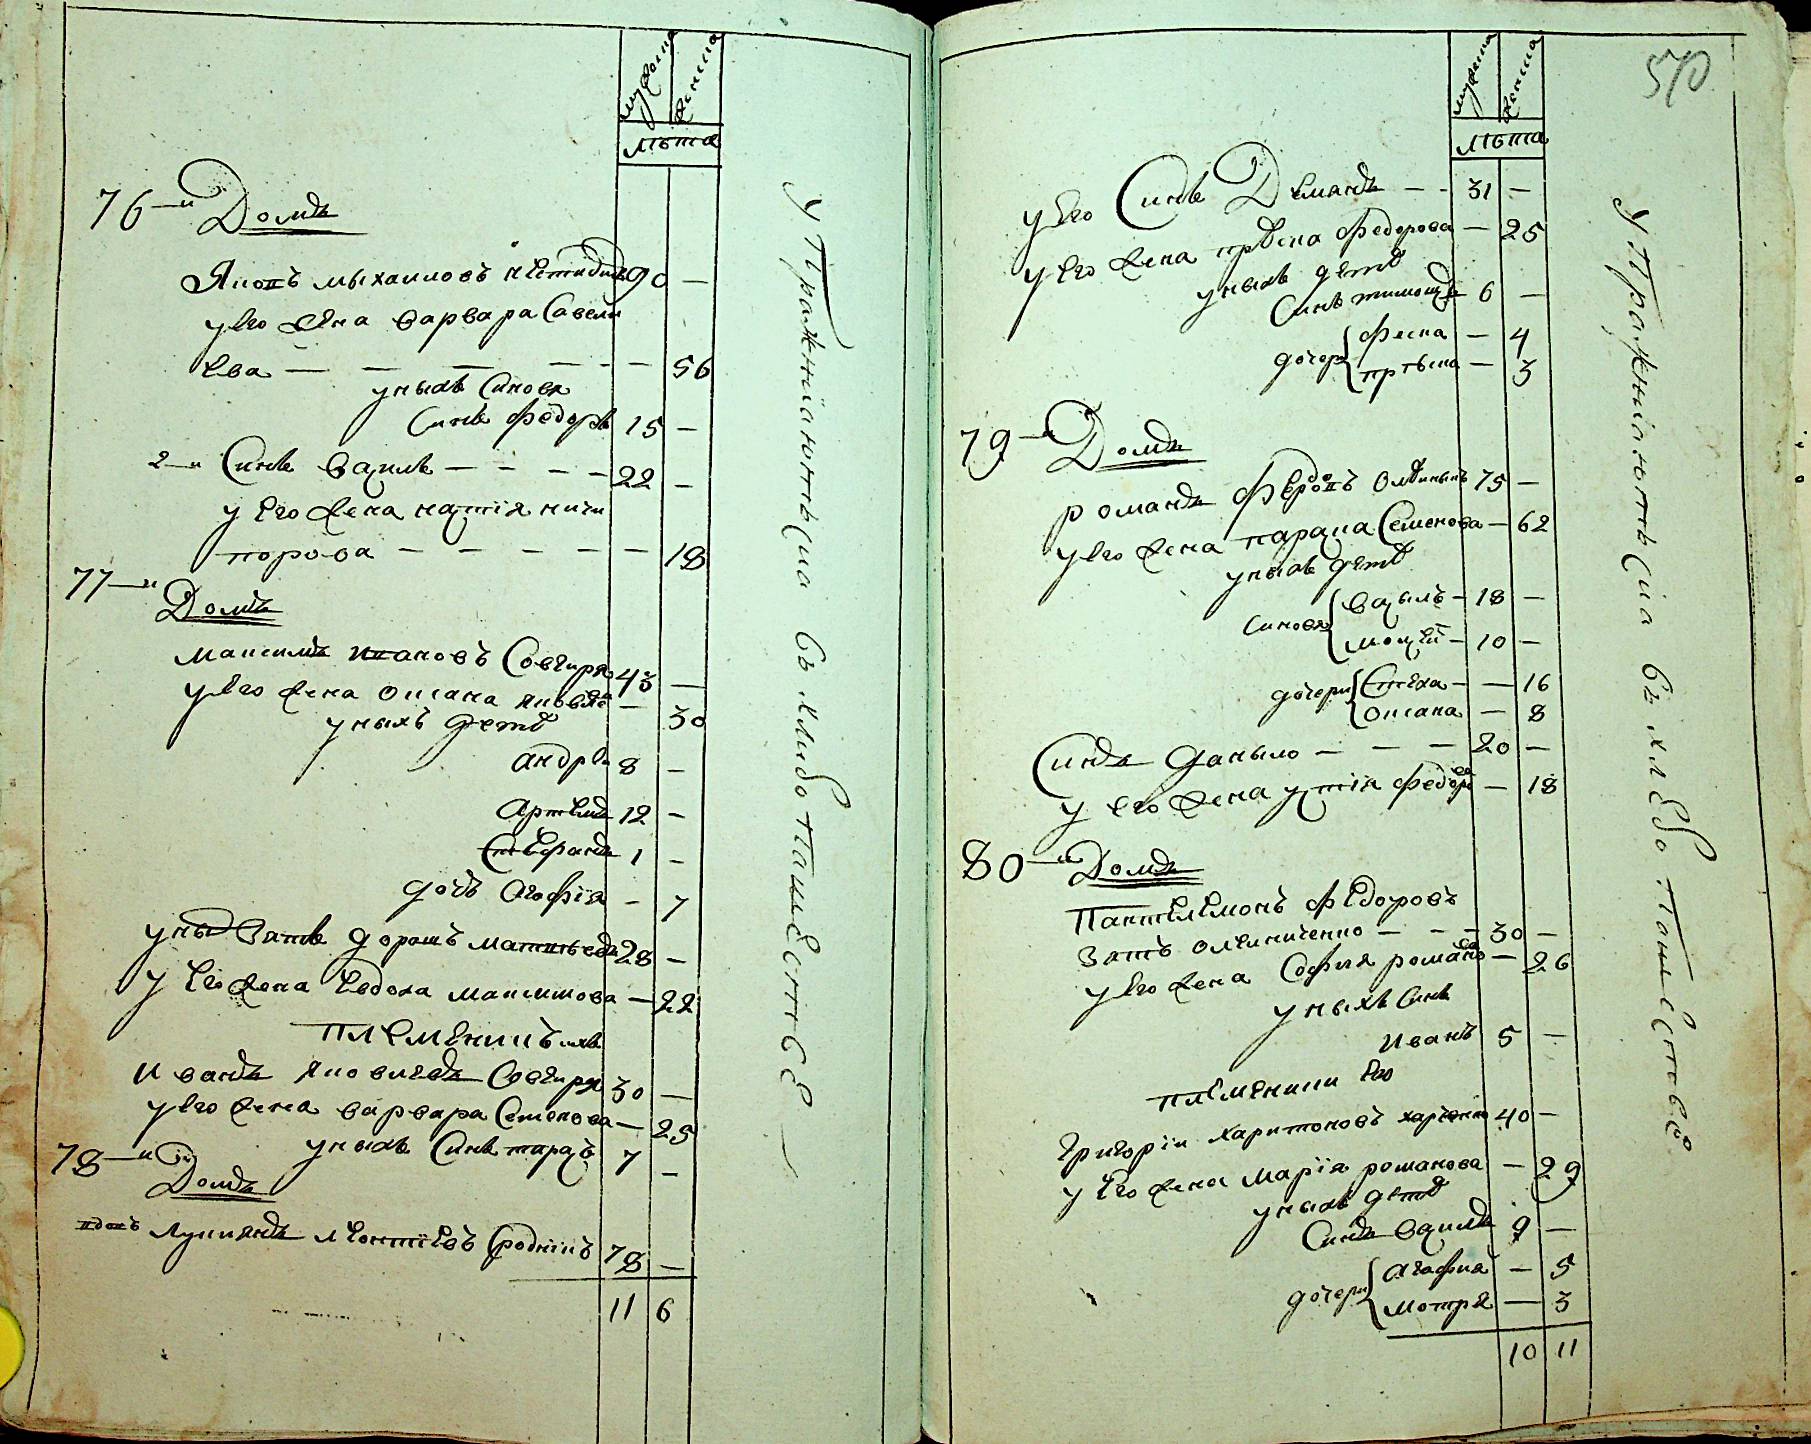 мужеска женска
лѣта
76-и Домъ
Яковъ Мыхаиловъ 90 —
у Его жена варвара Савели
Ева — — — — — — 56
у ныхъ Синовя
Синъ Федоръ 15 —
2-и Синъ Василь — — — — 22 —
у Его жена настія ничи
порова — — — — — — 18
77-и Домъ
Максимъ Ивановъ Совгиря 43 —
у Его жена Оксана Яковле — 30
у ныхъ дети
андрей 8 —
Артемъ 12 —
Стефанъ 1 —
дочь Агофія — 7
у ных Зять дорошъ Матвѣевъ 28 —
у Его жена Евдоха Максимова — 22
племенникъ ихъ
Иванъ Яковлевъ Совгиря 30 —
у Его жена варвара Семенова — 25
у ныхъ Синъ тарасъ 7 —
78-и Домъ
вдовъ Лукиянъ Леонтіевъ 78 —
11 6
Упражнаютъся въ хлибопашестве —
570
мужеска женска
лѣта
у Его Синъ Демянъ — - 31 —
у Его жена Федорова — 25
у ныхъ дети
Синъ тимошъ 6 —
дочери феска — 4
3
79-и Домъ
романъ 75 —
у Его жена параска Семенова — 62
у ныхъ дети
Синовя васыль — 18 —
мосей — 10 —
дочери Стеха — — 16
Оксана — 8
Синъ даныло — — — 20 —
у Его жена устія Федорова — 18
80-и Домъ
Пантелемонъ Федоровъ
Зять Олейниченко — — — 30 —
у Его жена София романова — 26
у ныхъ Синъ
Иванъ 5 —
племенник Его
Григоріи Харитоновъ харченко 40 —
у Его жена Марія романова — 29
у ныхъ дети
Синъ василь 9 —
дочери Агафия — 5
мотря — 3
10 11
Упражнаютъся въ хлебопашестве